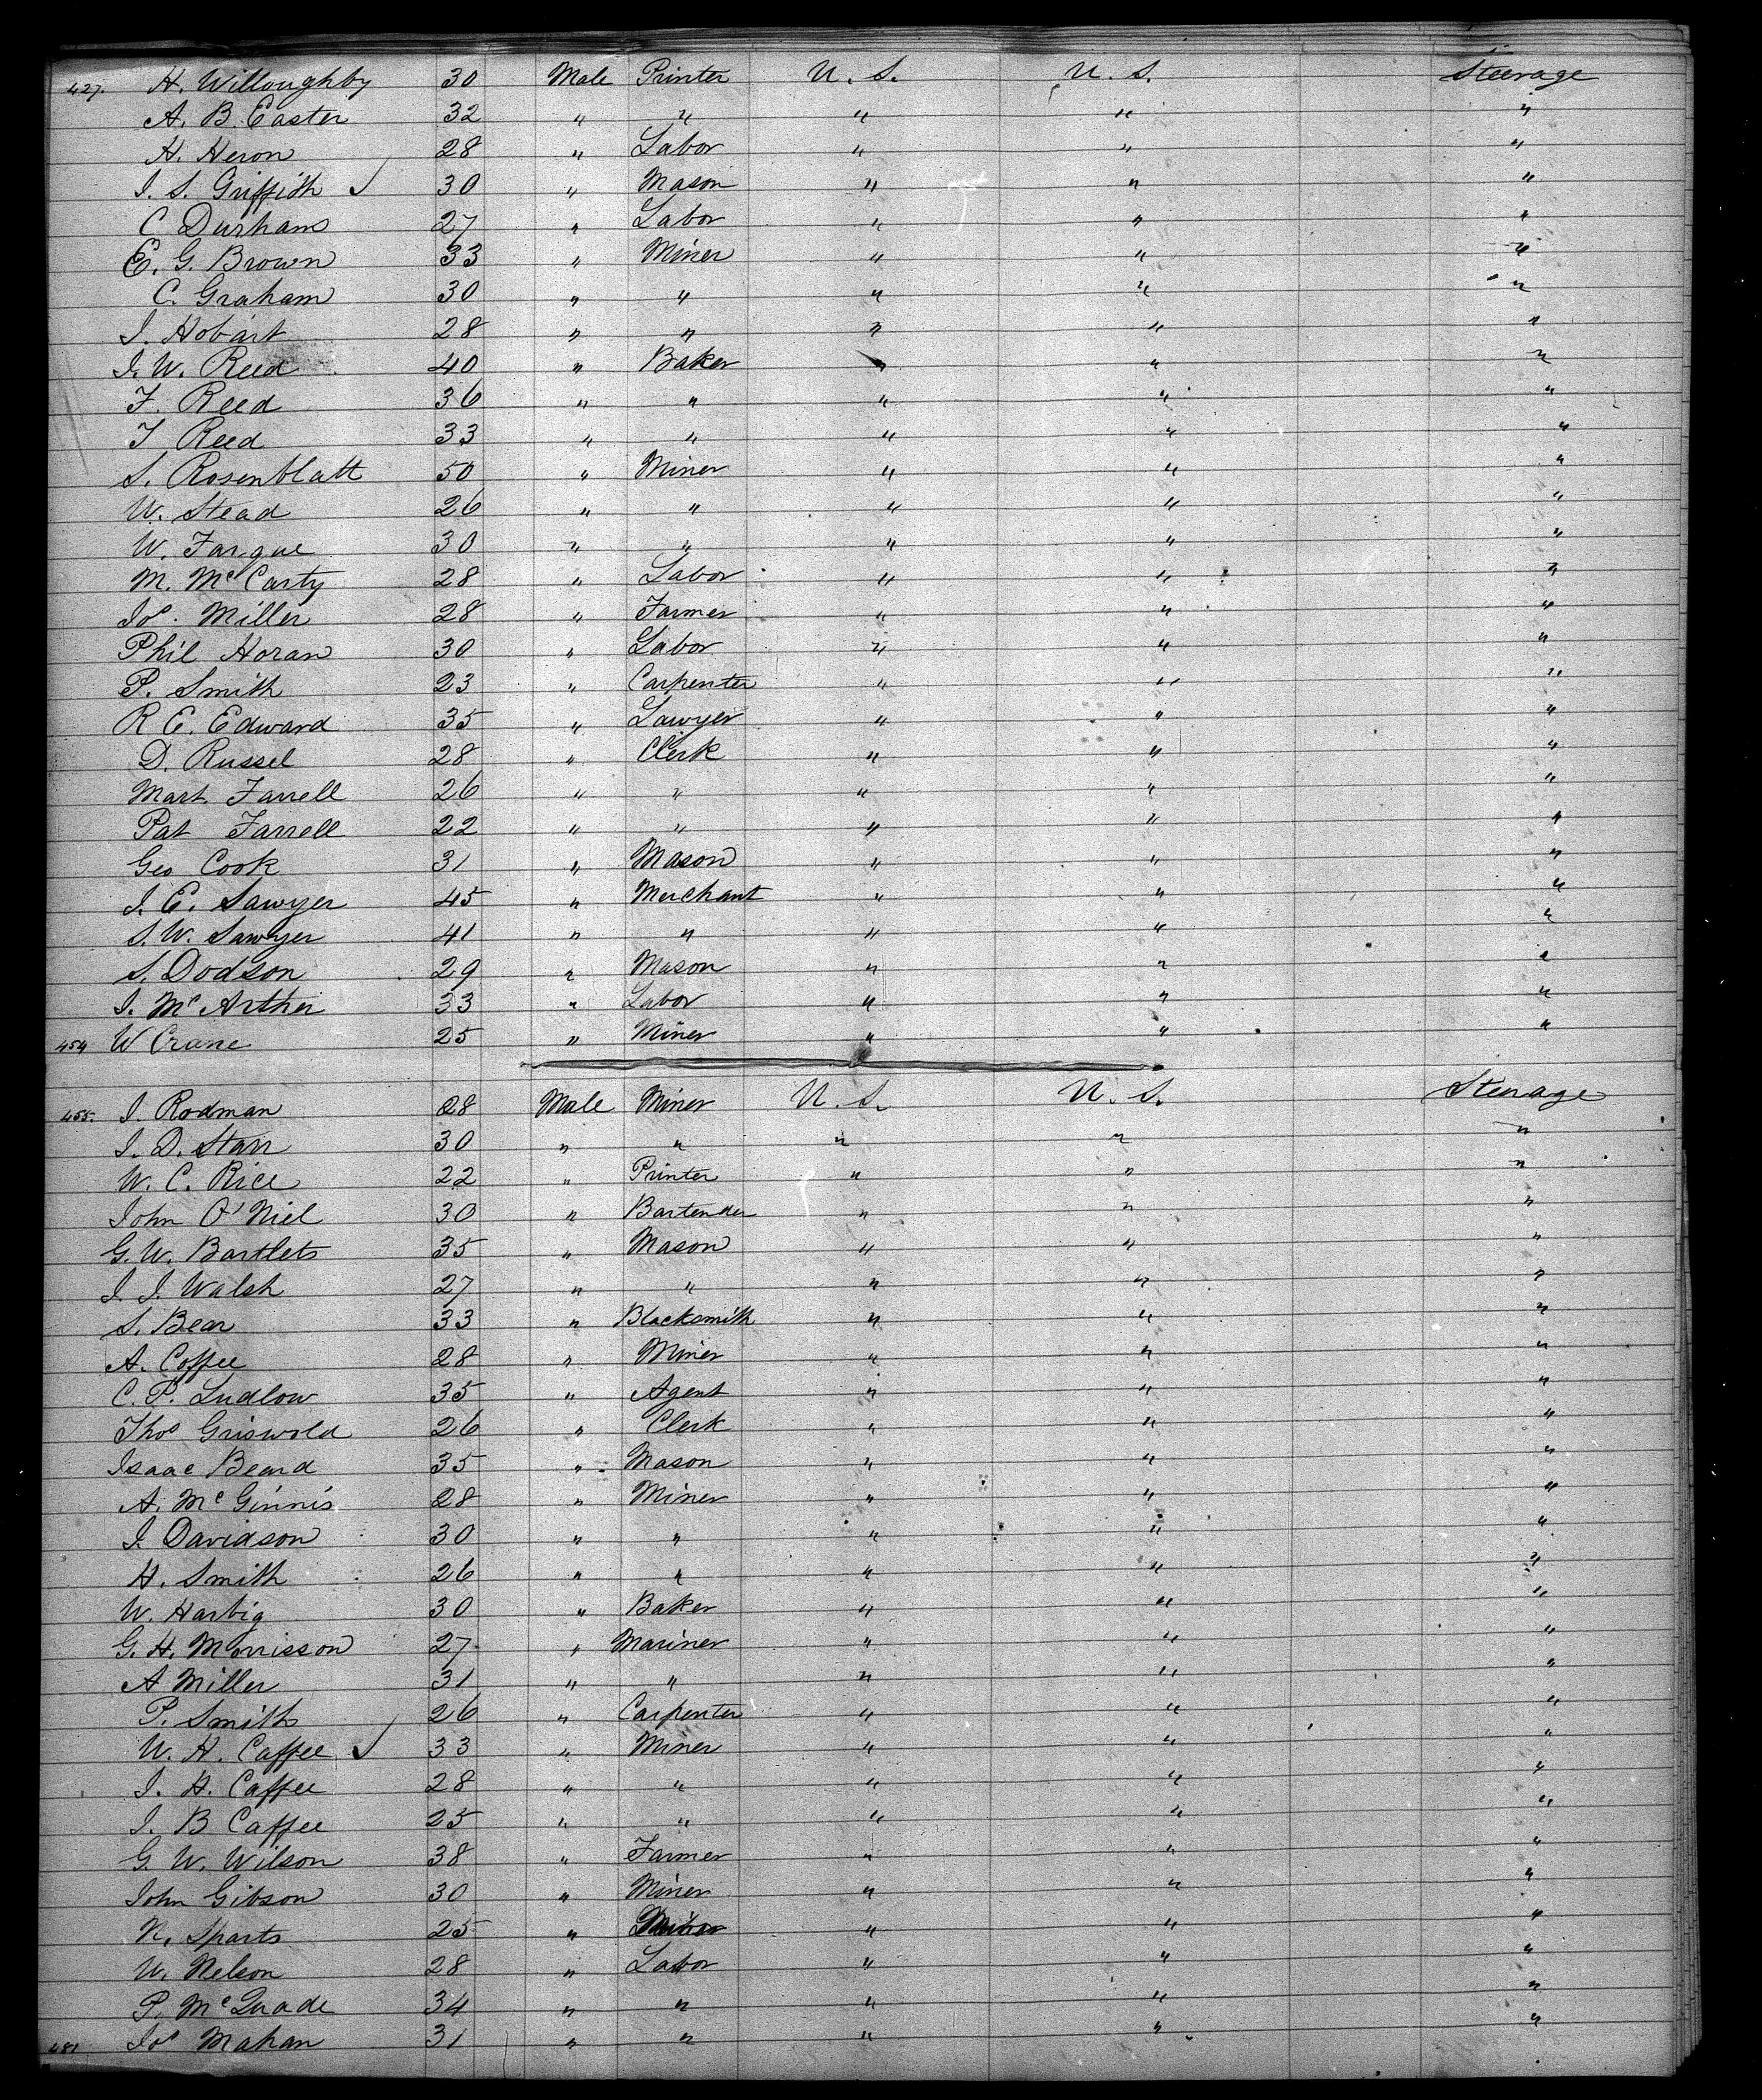 427. H. Willoughby 30 Male Printer U. S. U. S. Steerage
A. B. Easter 32 " " " " "
H. Heron 28 " Labor " " "
I. S. Griffith ✓ 30 " Mason " " "
C Durham 27 " Labor " " "
E. G. Brown 33 " Miner " " "
C. Graham 30 " " " " "
I. Hobart 28 " " " " "
I. W. Reed 40 " Baker " " "
F. Reed 36 " " " " "
T Reed 33 " " " " "
S. Rosenblatt 50 " Miner " " "
W. Stead 26 " " " " "
W. Fargue 30 " " " " "
M. McCarty 28 " Labor " " "
Jos. Miller 28 " Farmer " " "
Phil Horan 30 " Labor " " "
P. Smith 23 " Carpenter " " "
R E. Edward 35 " Lawyer " " "
D. Russel 28 " Clerk " " "
Mart. Farrell 26 " " " " "
Pat Farrell 22 " " " " "
Geo Cook 31 " Mason " " "
I. E. Sawyer 45 " Merchant " " "
S. W. Sawyer 41 " " " " "
S. Dodson 29 " Mason " " "
I. McArther 33 " Labor " " "
454 W Crane 25 " Miner " " "
455. I. Rodman 28 Male Miner U. S. U. S. Steerage
I. D. Starr 30 " " " " "
W. C. Rice 22 " Printer " " "
John O'Niel 30 " Bartender " " "
G. W. Bartlets 35 " Mason " " "
I. I. Walsh 27 " " " " "
S. Bear 33 " Blacksmith " " "
A. Coffee 28 " Miner " " "
C. P. Ludlow 35 " Agent " " "
Thos Griswold 26 " Clerk " " "
Isaac Beard 35 " Mason " " "
A. McGinnis 28 " Miner " " "
I. Davidson 30 " " " " "
H. Smith 26 " " " " "
W. Harbig 30 " Baker " " "
G. H. Morrisson 27 " Mariner " " "
A Miller 31 " " " " "
P. Smith 26 " Carpenter " " "
W. H. Caffee ✓ 33 " Miner " " "
I. H. Caffee 28 " " " " "
I. B Caffee 25 " " " " "
G. W. Wilson 38 " Farmer " " "
John Gibson 30 " Miner " " "
N. Sparts 25 " " "
W. Nelson 28 " Labor " " "
P. McQuade 34 " " " " "
481 Jos Mahan 31 " " " " "